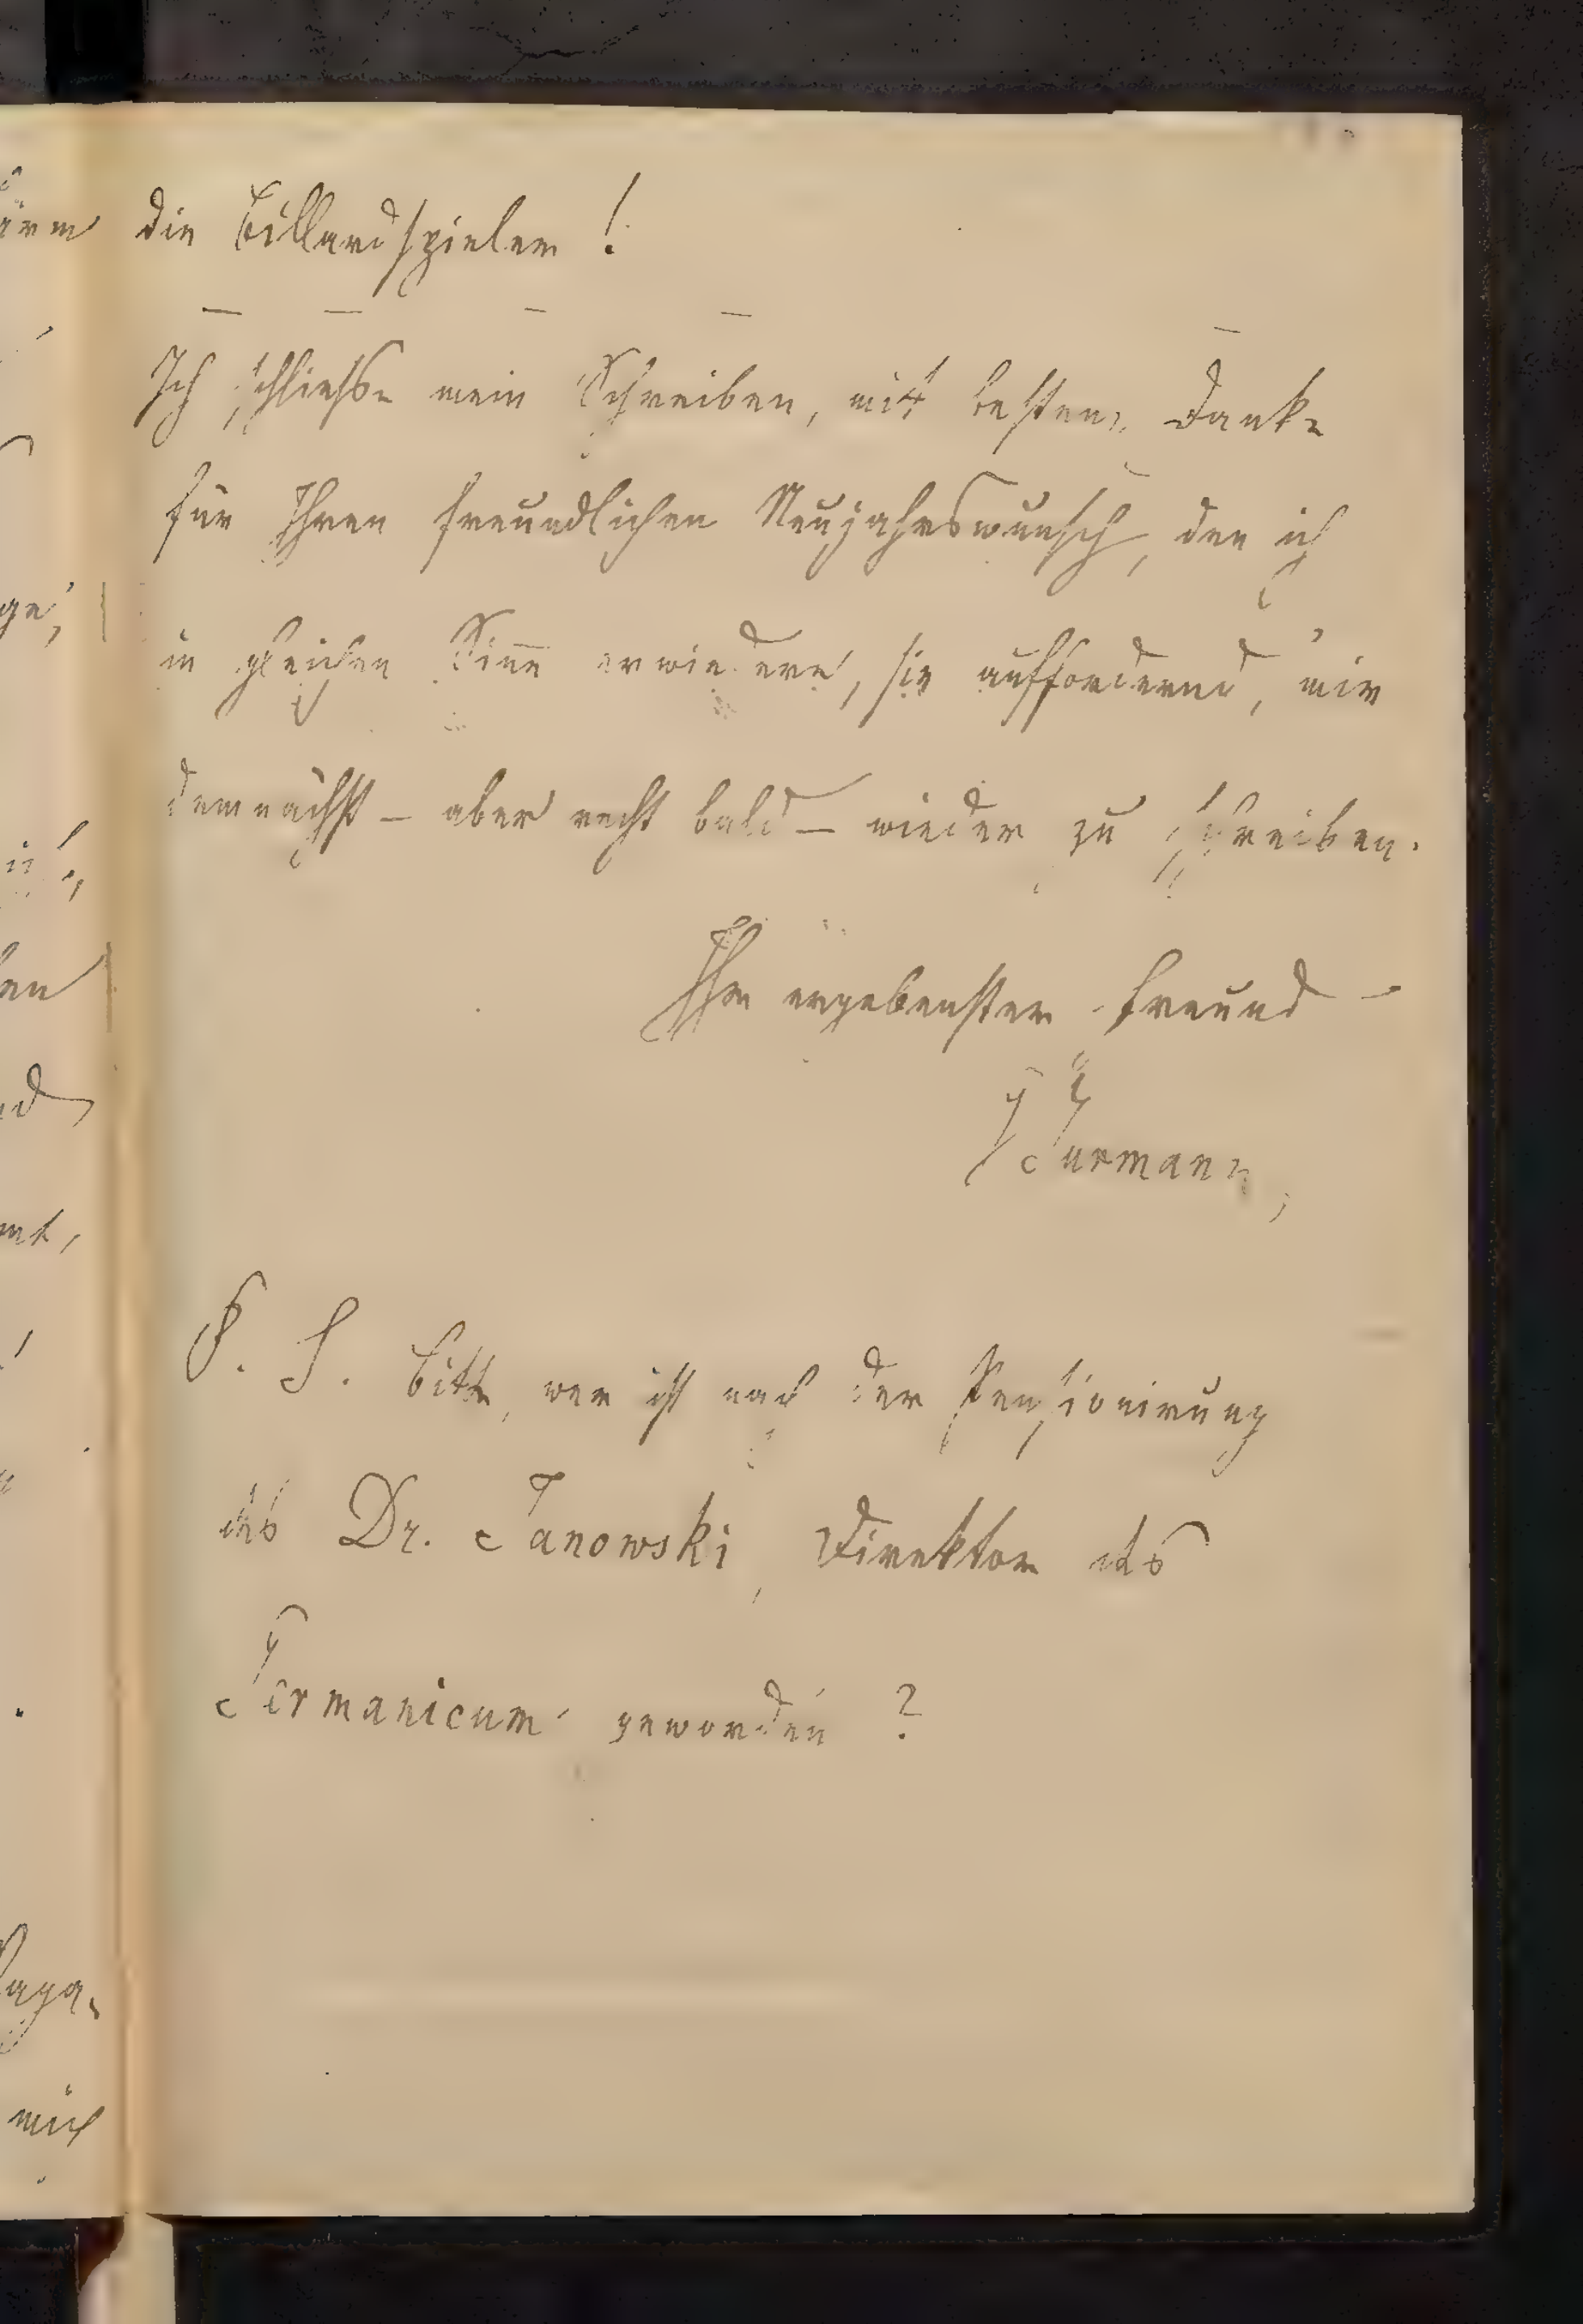 die Billardspieler!
Ich schließe mein Schreiben, mit bestem Danke
für Ihren freundlichen Neujahrswunsch, den ich
in gleichen Sinn erwiedere, sie auffordernd, mir
demnächst – aber recht bald – wieder zu schreiben.
Ihr ergebenster Freund –
P. S. Bitte, wer ist nach der Pensionirung
des Dr. Janowski, Direktor des
Germanicum geworden?